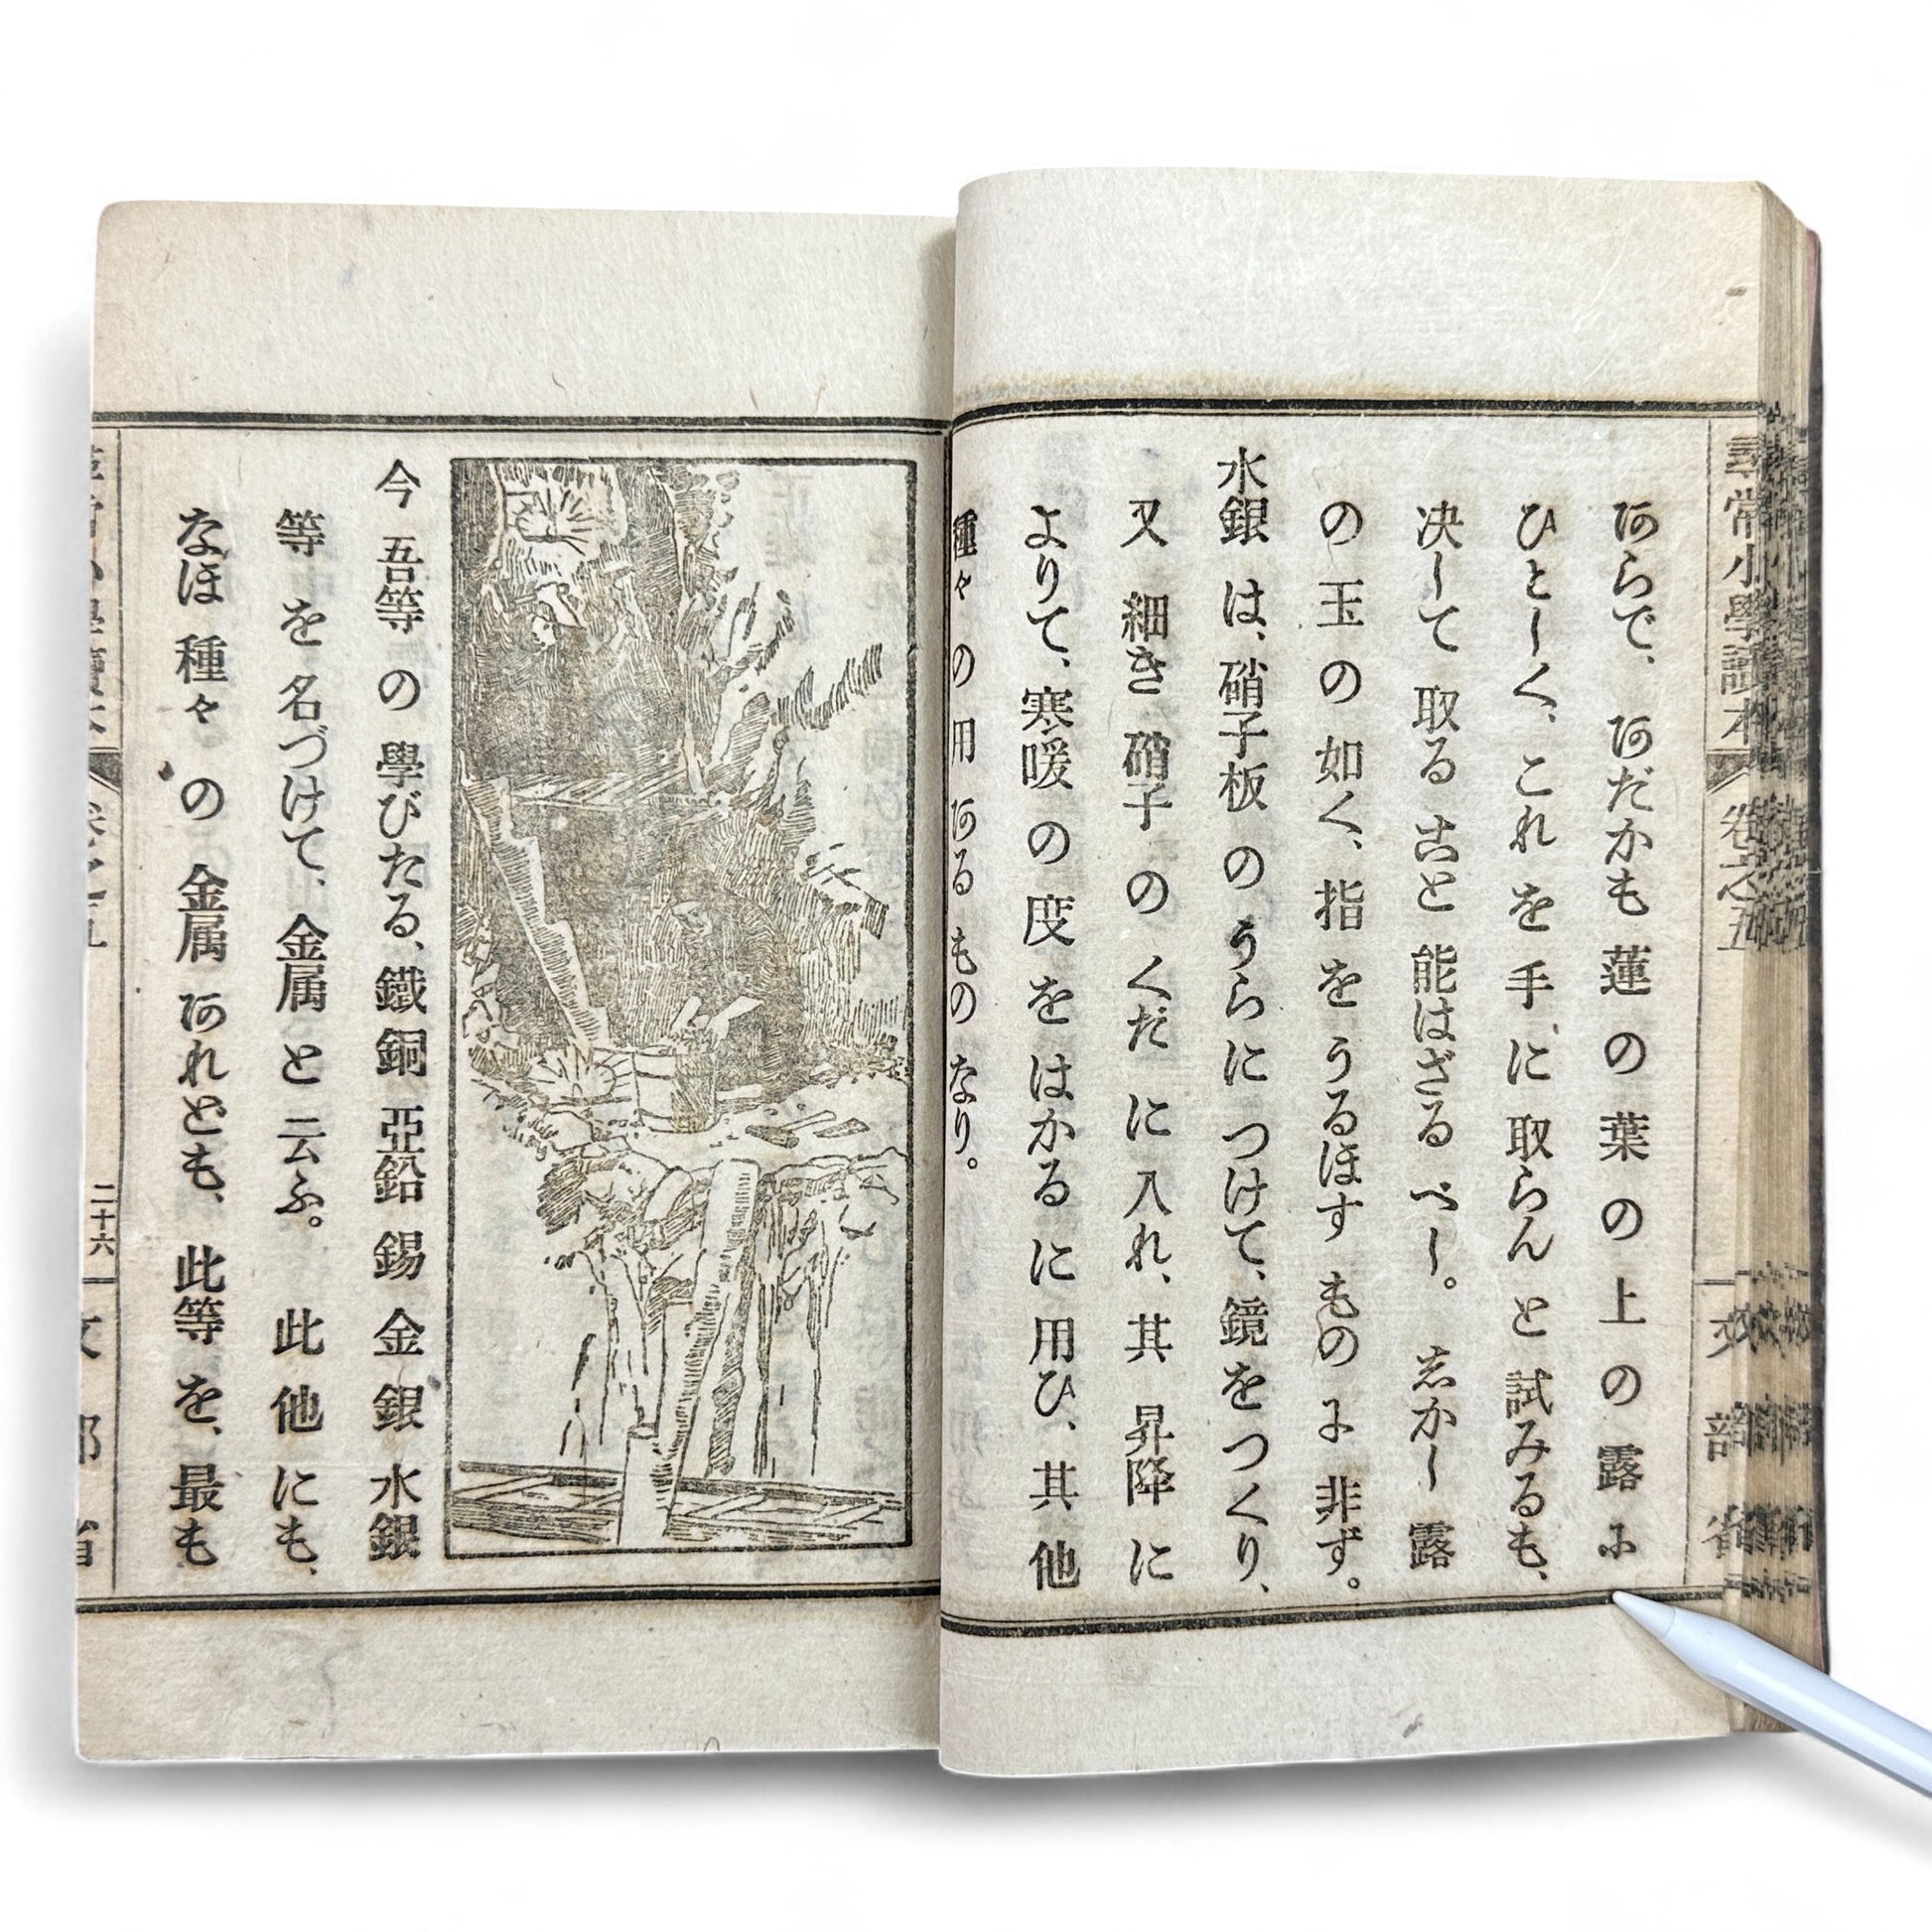 尋常小學讀本 卷之五 文部省
あらで、あだかも蓮の葉の上の露に
ひとしく、これを手に取らんと試みるも、
决して取ること能はざるべし。しかし露
の玉の如く、指をうるほすものに非ず。
水銀は、硝子板のうらにつけて、鏡をつくり、
又細き硝子のくだに入れ、其昇降に
よりて、寒暖の度をはかるに用ひ、其他
種々の用あるものなり。
今吾等の學びたる、鐵銅亞鉛錫金銀水銀
等を名づけて、金属と云ふ。此他にも、
なほ種々の金属あれども、此等を、最も
二十六